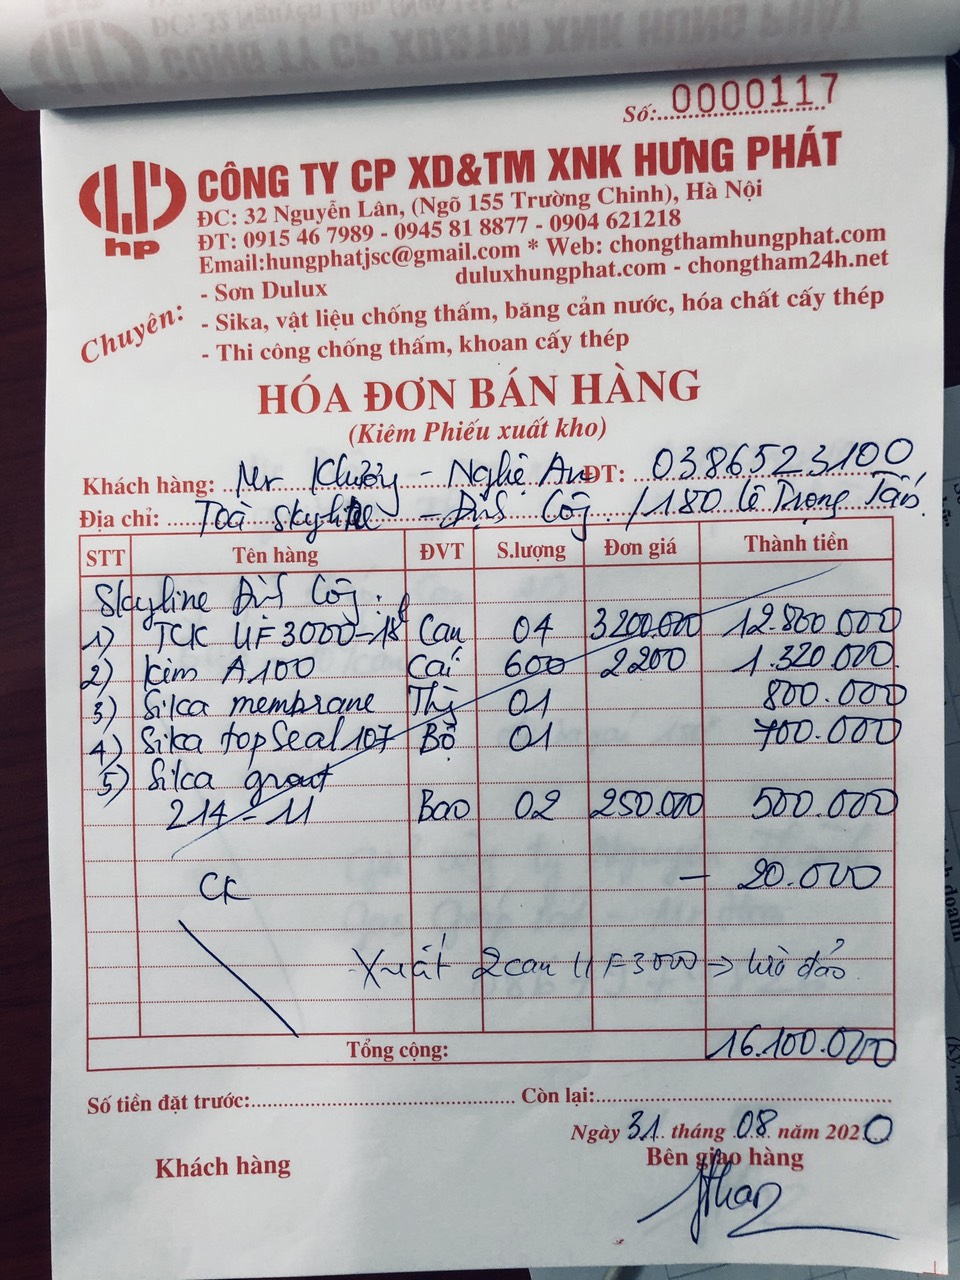 Số: 0000117
CÔNG TY CP XD&TM XNK HƯNG PHÁT
hp
ĐC: 32 Nguyễn Lân, (Ngõ 155 Trường Chinh), Hà Nội
ĐT: 0915 46 7989 - 0945 81 8877 - 0904 621218
Email:hungphatjsc@gmail.com * Web: chongthamhungphat.com
duluxhungphat.com - chongtham24h.net
Chuyên:
- Sơn Dulux
- Sika, vật liệu chống thấm, băng cản nước, hóa chất cấy thép
- Thi công chống thấm, khoan cấy thép
HÓA ĐƠN BÁN HÀNG
(Kiêm Phiếu xuất kho)
Khách hàng: Mr - Nghệ An ĐT: 0386523100
Địa chỉ: Toà Skyline - /180 Lê Trọng Tấn
STT Tên hàng ĐVT S.lượng Đơn giá Thành tiền
Skyline
1) TCK UF3000-18 Can 04 3200.000 12.800.000
2) Kim A100 Cái 600 2200 1.320.000
3) Sika membrane 01 800.000
4) Sika topSeal 107 Bộ 01 700.000
5) Sika grout
214-11 Bao 02 250.000 500.000
CK - 20.000
Xuất 2 can UF3000 →
Tổng cộng: 16.100.000
Số tiền đặt trước: Còn lại:
Ngày 31 tháng 08 năm 2020
Khách hàng Bên giao hàng